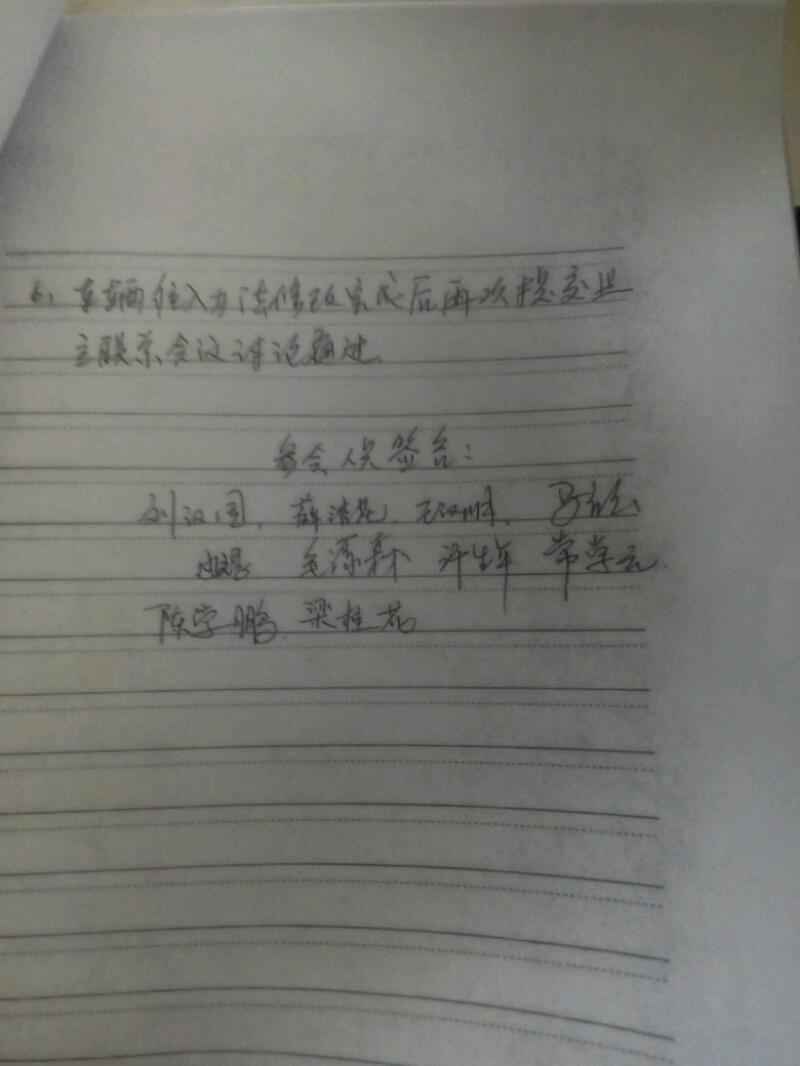 6、车辆准入办法修改完成后再次提交业
主联系会议讨论通过。
参会人员签名：
刘汉国、薛洁花、
许生军 常学云
陈学鹏 梁桂花